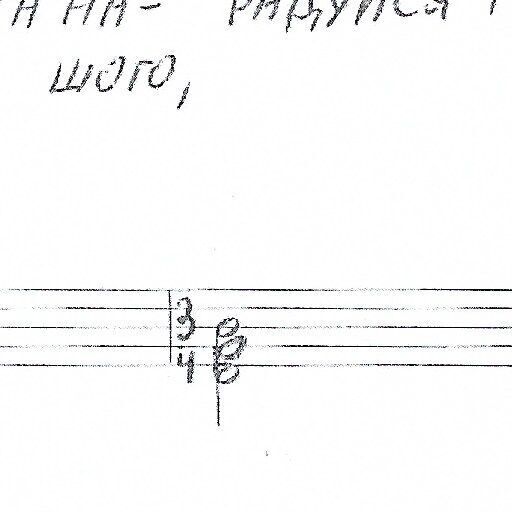 на- радуйся
шого,
3
4